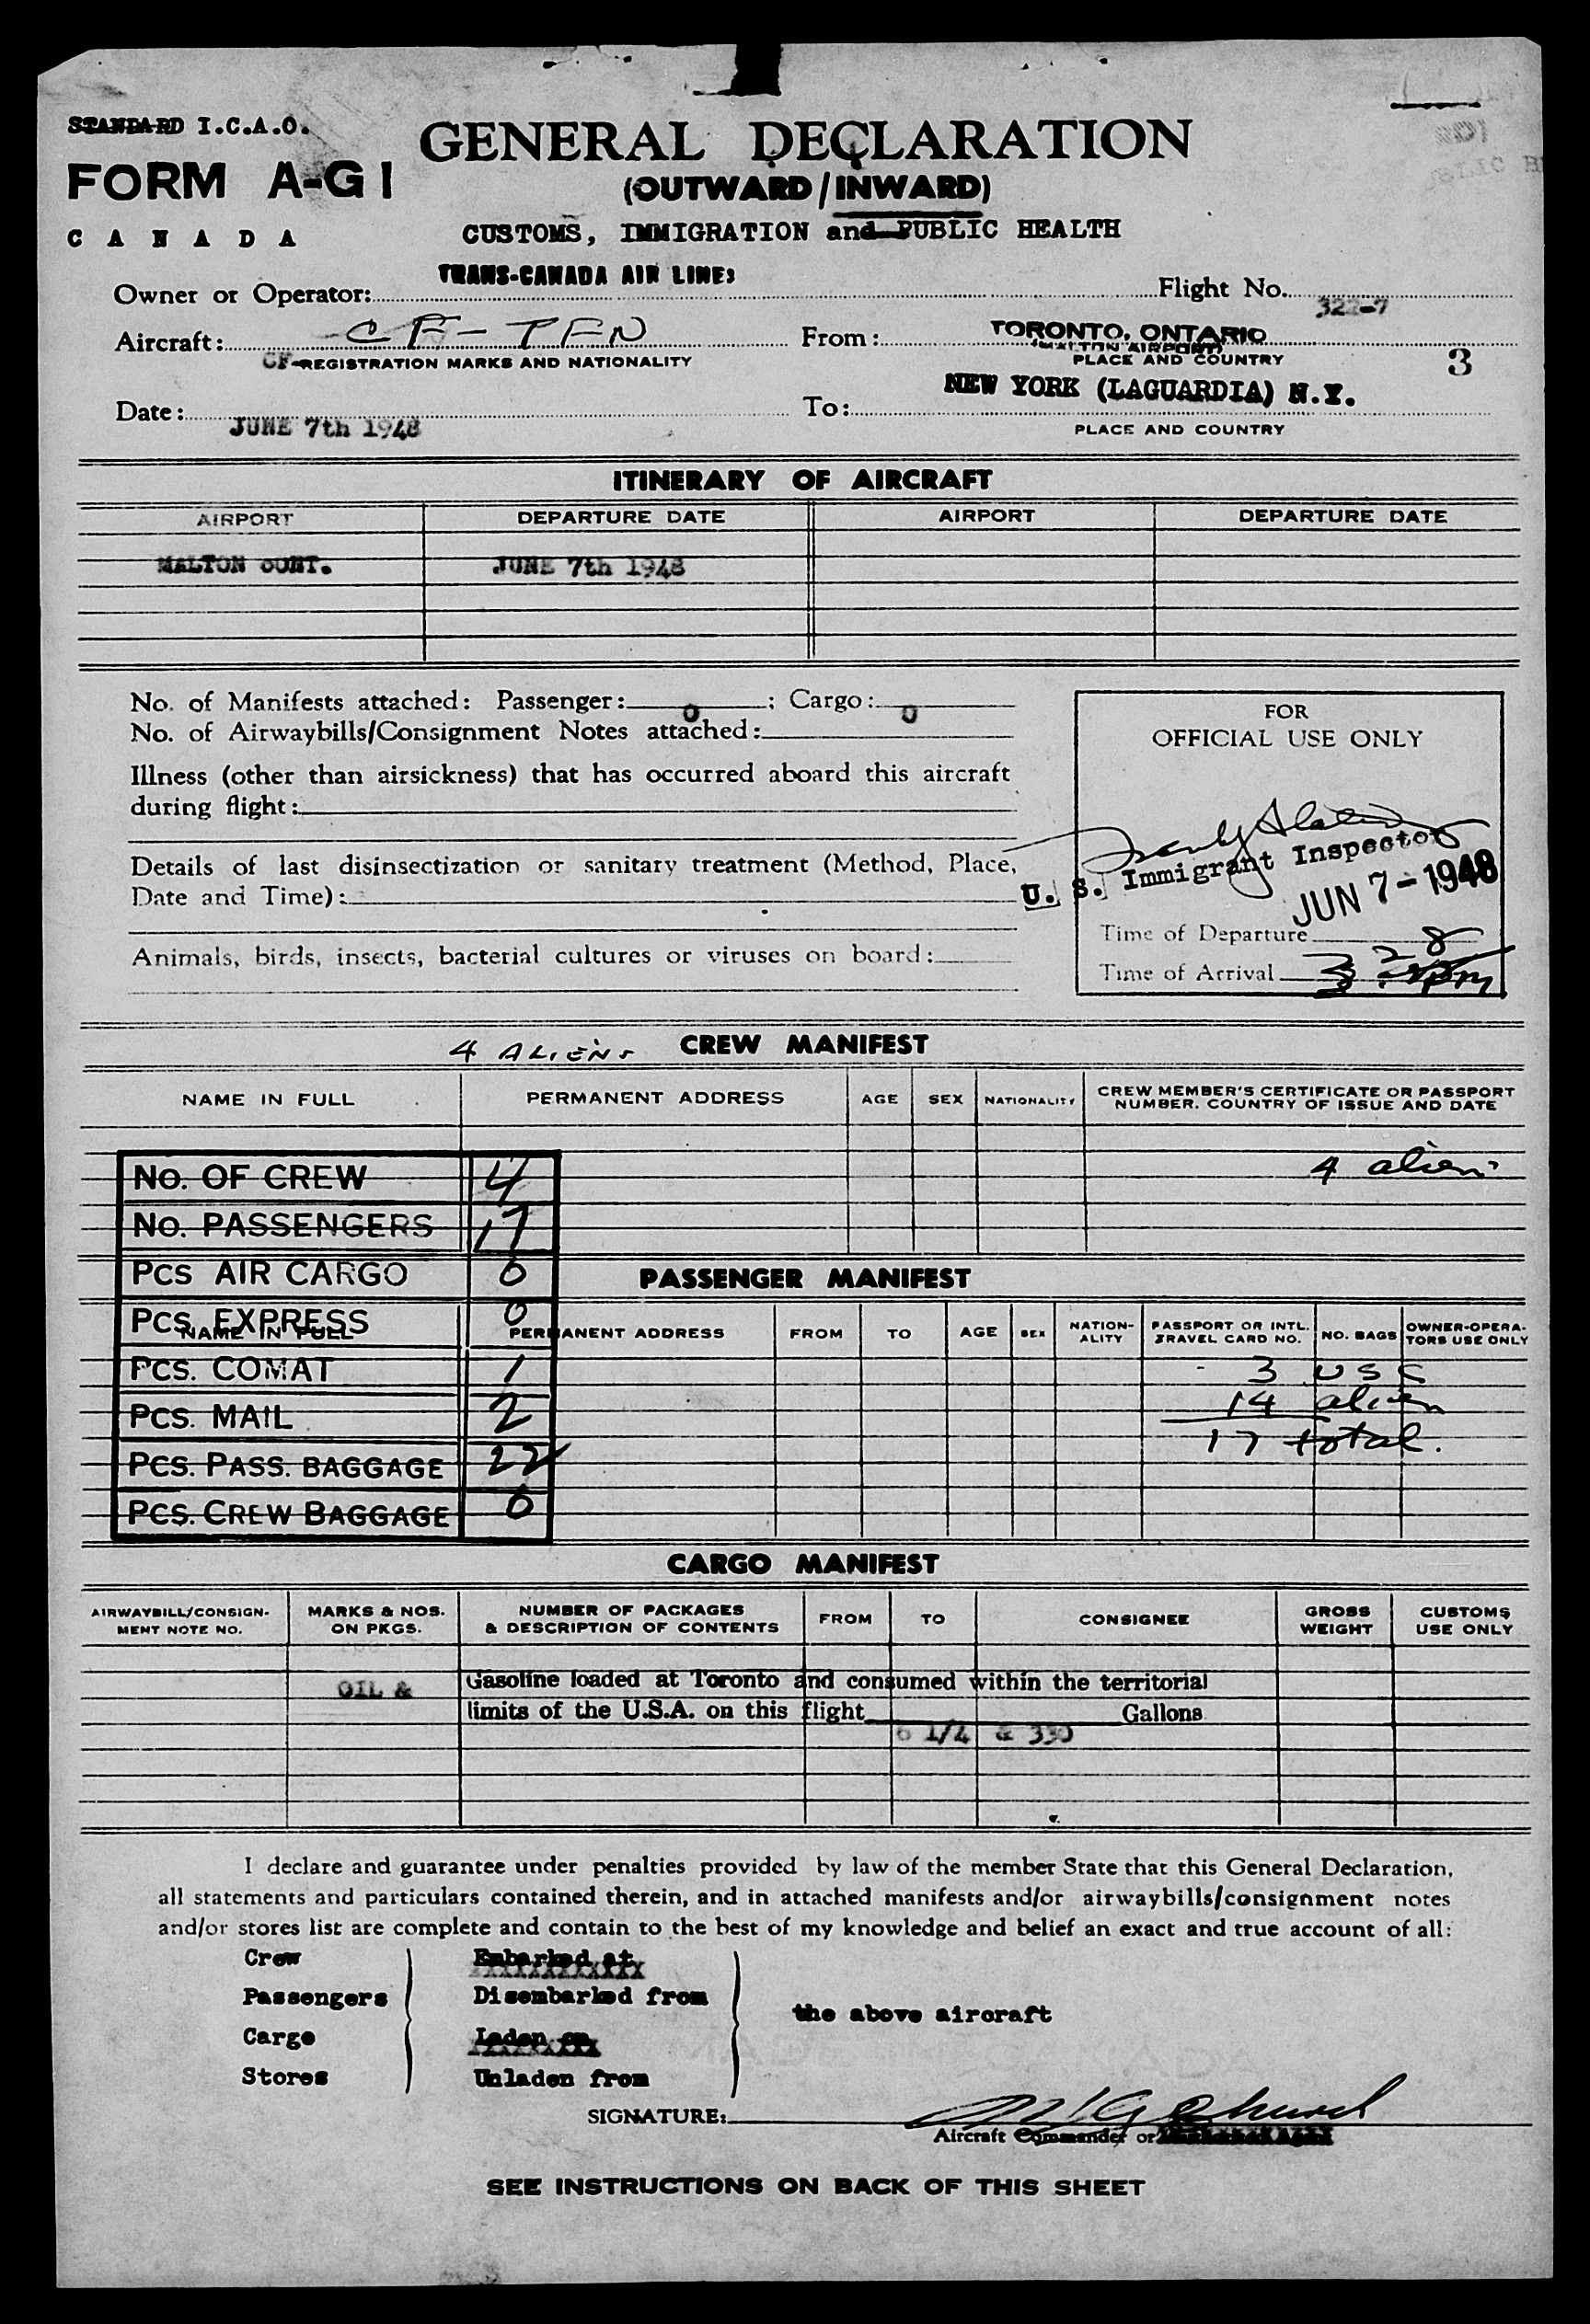 STANDARD I.C.A.O.
FORM A-G1
CANADA
GENERAL DECLARATION
(OUTWARD/INWARD)
CUSTOMS, IMMIGRATION and PUBLIC HEALTH
Owner or Operator: TRANS-CANADA AIR LINES
Flight No. 322-7
Aircraft: CF-TFN
CF-REGISTRATION MARKS AND NATIONALITY
From: TORONTO, ONTARIO
(MALTON AIRPORT)
PLACE AND COUNTRY
3
Date: JUNE 7th 1948
To: NEW YORK (LAGUARDIA) N.Y.
PLACE AND COUNTRY
ITINERARY OF AIRCRAFT
AIRPORT DEPARTURE DATE AIRPORT DEPARTURE DATE
MALTON OONT. JUNE 7th 1948
No. of Manifests attached: Passenger: 0; Cargo: 0
No. of Airwaybills/Consignment Notes attached:
Illness (other than airsickness) that has occurred aboard this aircraft
during flight:
Details of last disinsectization or sanitary treatment (Method, Place,
Date and Time):
Animals, birds, insects, bacterial cultures or viruses on board:
FOR
OFFICIAL USE ONLY
U. S. Immigrant Inspector
JUN 7-1948
Time of Departure
Time of Arrival 3 28
4 ALIENS CREW MANIFEST
NAME IN FULL PERMANENT ADDRESS AGE SEX NATIONALITY CREW MEMBER'S CERTIFICATE OR PASSPORT
NUMBER. COUNTRY OF ISSUE AND DATE
4 aliens
No. OF CREW 4
No. PASSENGERS 17
PCS AIR CARGO 0
PCS. EXPRESS 0
PCS. COMAT 1
PCS. MAIL 2
PCS. PASS. BAGGAGE 22
PCS. CREW BAGGAGE 0
PASSENGER MANIFEST
NAME IN FULL PERMANENT ADDRESS FROM TO AGE SEX NATION-
ALITY PASSPORT OR INTL.
TRAVEL CARD NO. NO. BAGS OWNER-OPERA-
TORS USE ONLY
3 USC
14 alien
17 total.
CARGO MANIFEST
AIRWAYBILL/CONSIGN-
MENT NOTE NO. MARKS & NOS.
ON PKGS. NUMBER OF PACKAGES
& DESCRIPTION OF CONTENTS FROM TO CONSIGNEE GROSS
WEIGHT CUSTOMS
USE ONLY
OIL & Gasoline loaded at Toronto and consumed within the territorial
limits of the U.S.A. on this flight Gallons
6 1/4 & 330
I declare and guarantee under penalties provided by law of the member State that this General Declaration,
all statements and particulars contained therein, and in attached manifests and/or airwaybills/consignment notes
and/or stores list are complete and contain to the best of my knowledge and belief an exact and true account of all:
Crew Embarked at
Passengers Disembarked from
the above aircraft
Cargo Laden on
Stores Unladen from
SIGNATURE:
Aircraft Commander or
SEE INSTRUCTIONS ON BACK OF THIS SHEET